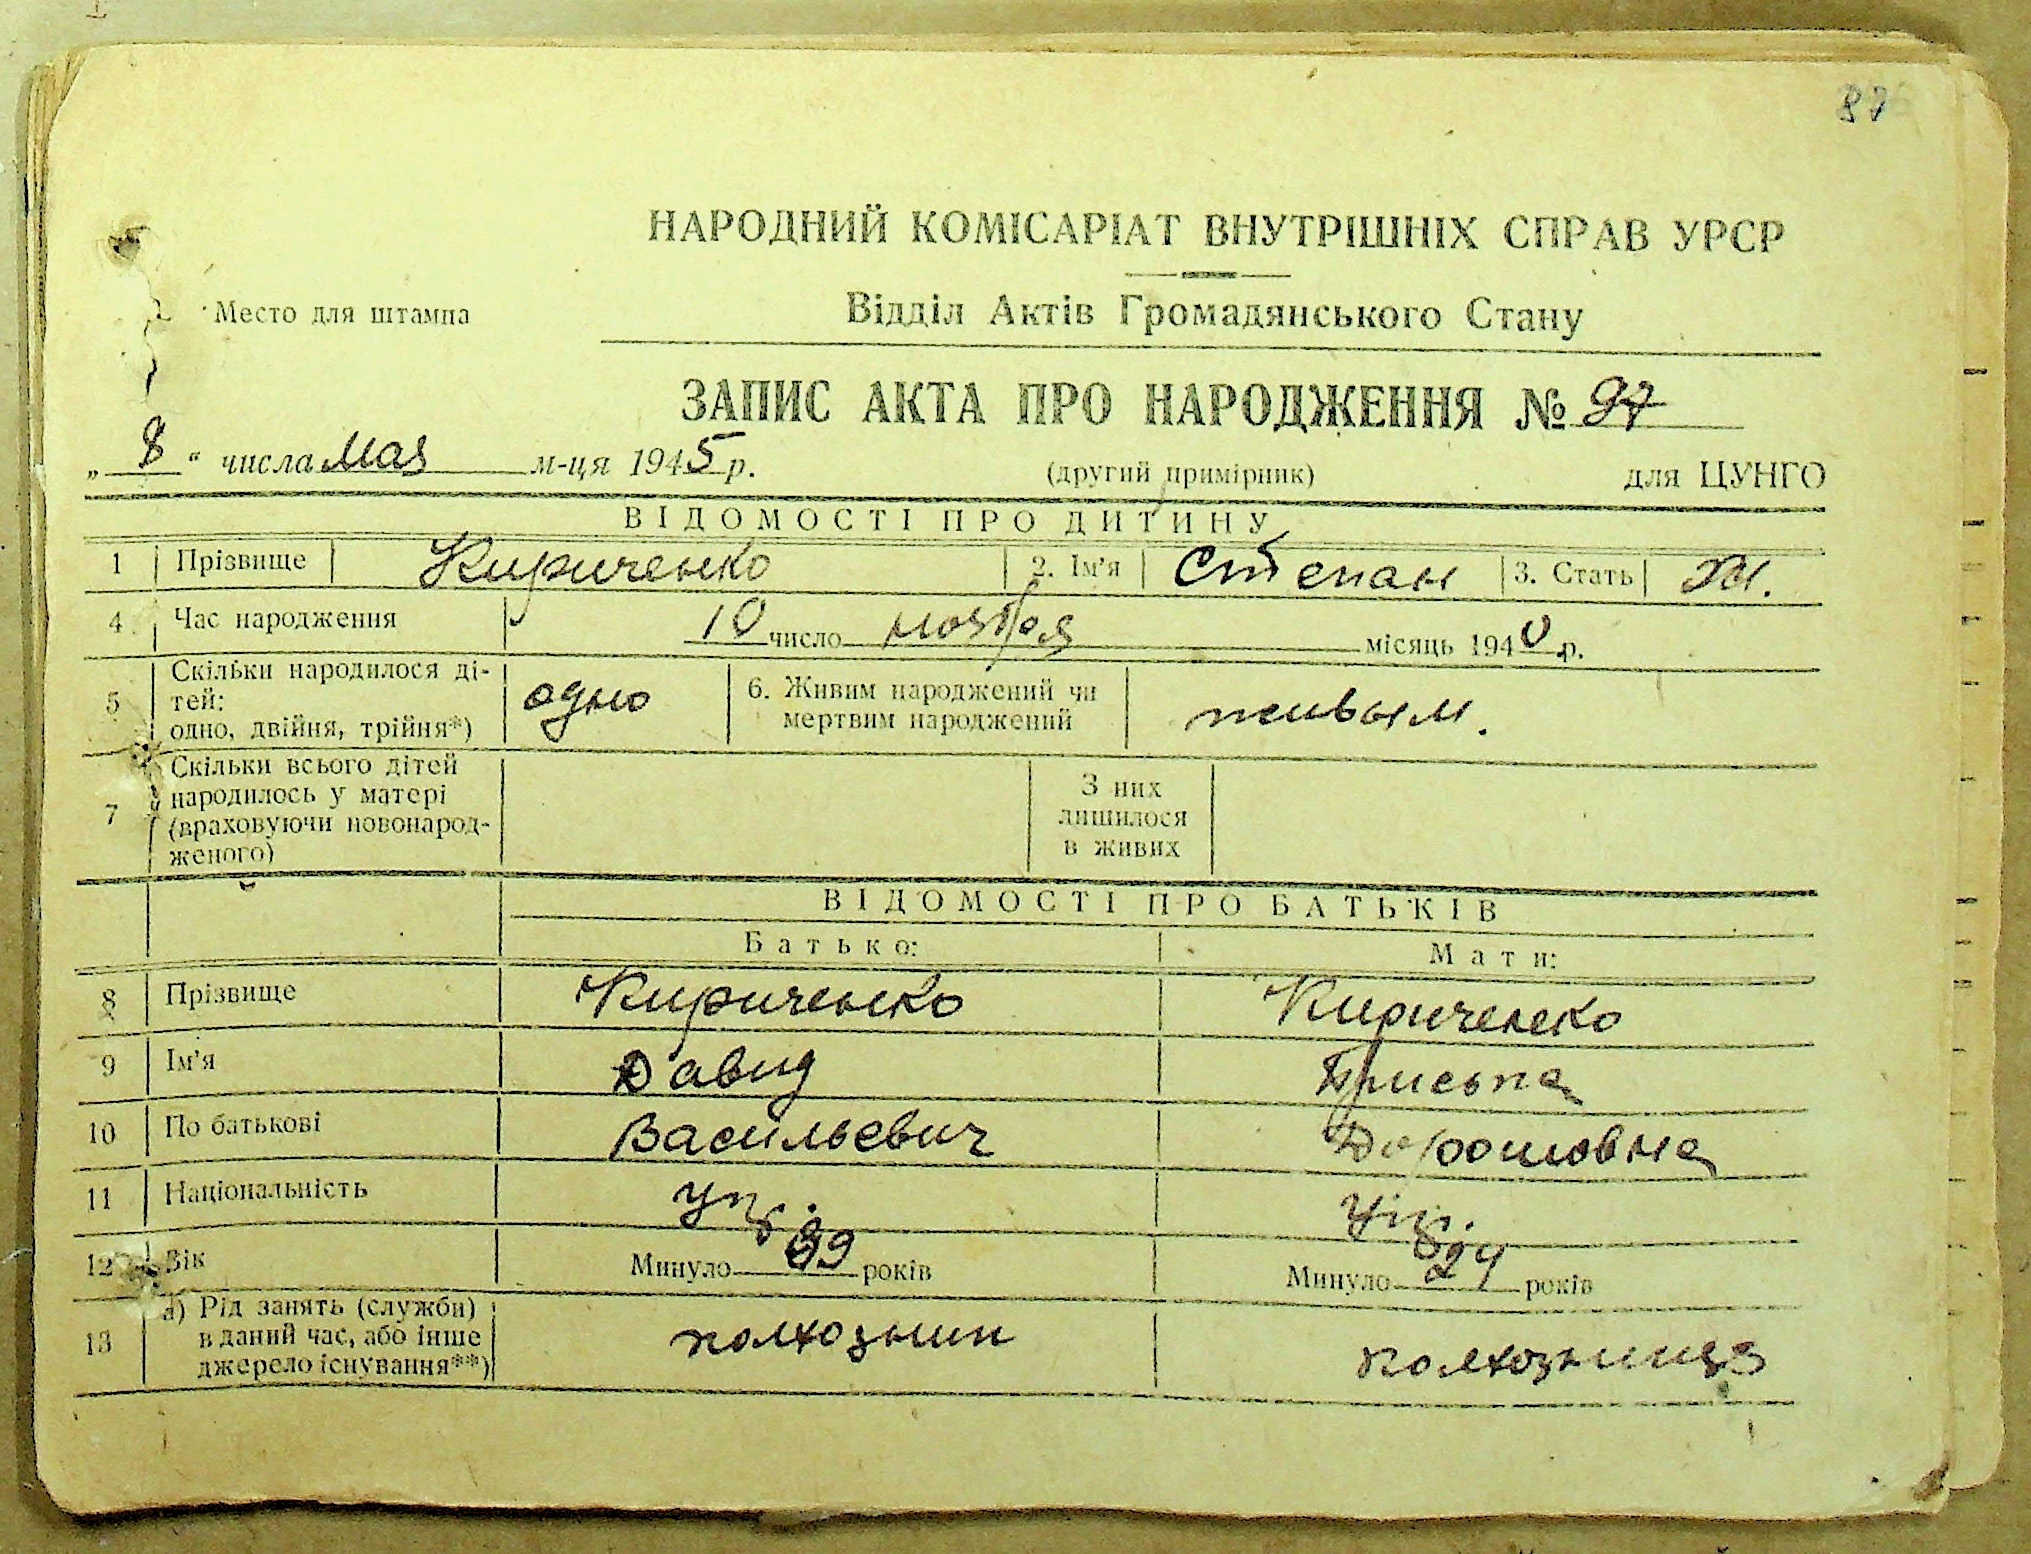 87
НАРОДНИЙ КОМІСАРІАТ ВНУТРІШНІХ СПРАВ УРСР
Место для штампа
Відділ Актів Громадянського Стану
ЗАПИС АКТА ПРО НАРОДЖЕННЯ № 97
„ 8 “ числа мая м-ця 1945 р.
(другий примірник) для ЦУНГО
ВІДОМОСТІ ПРО ДИТИНУ
1 Прізвище Кириченко 2. Ім'я Степан 3. Стать М.
4 Час народження 10 число ноября місяць 1940 р.
5 Скільки народилося ді-
тей:
одно, двійня, трійня*) одно
6. Живим народжений чи
мертвим народжений живым.
7 Скільки всього дітей
народилось у матері
(враховуючи новонарод-
женого)
З них
лишилося
в живих
ВІДОМОСТІ ПРО БАТЬКІВ
Батько: Мати:
8 Прізвище Кириченко Кириченко
9 Ім'я Давид Приська
10 По батькові Васильевич Дорошовна
11 Національність укр. укр.
12 Вік Минуло 39 років Минуло 24 років
13 а) Рід занять (служби)
в даний час, або інше
джерело існування**) колхозник колхозница